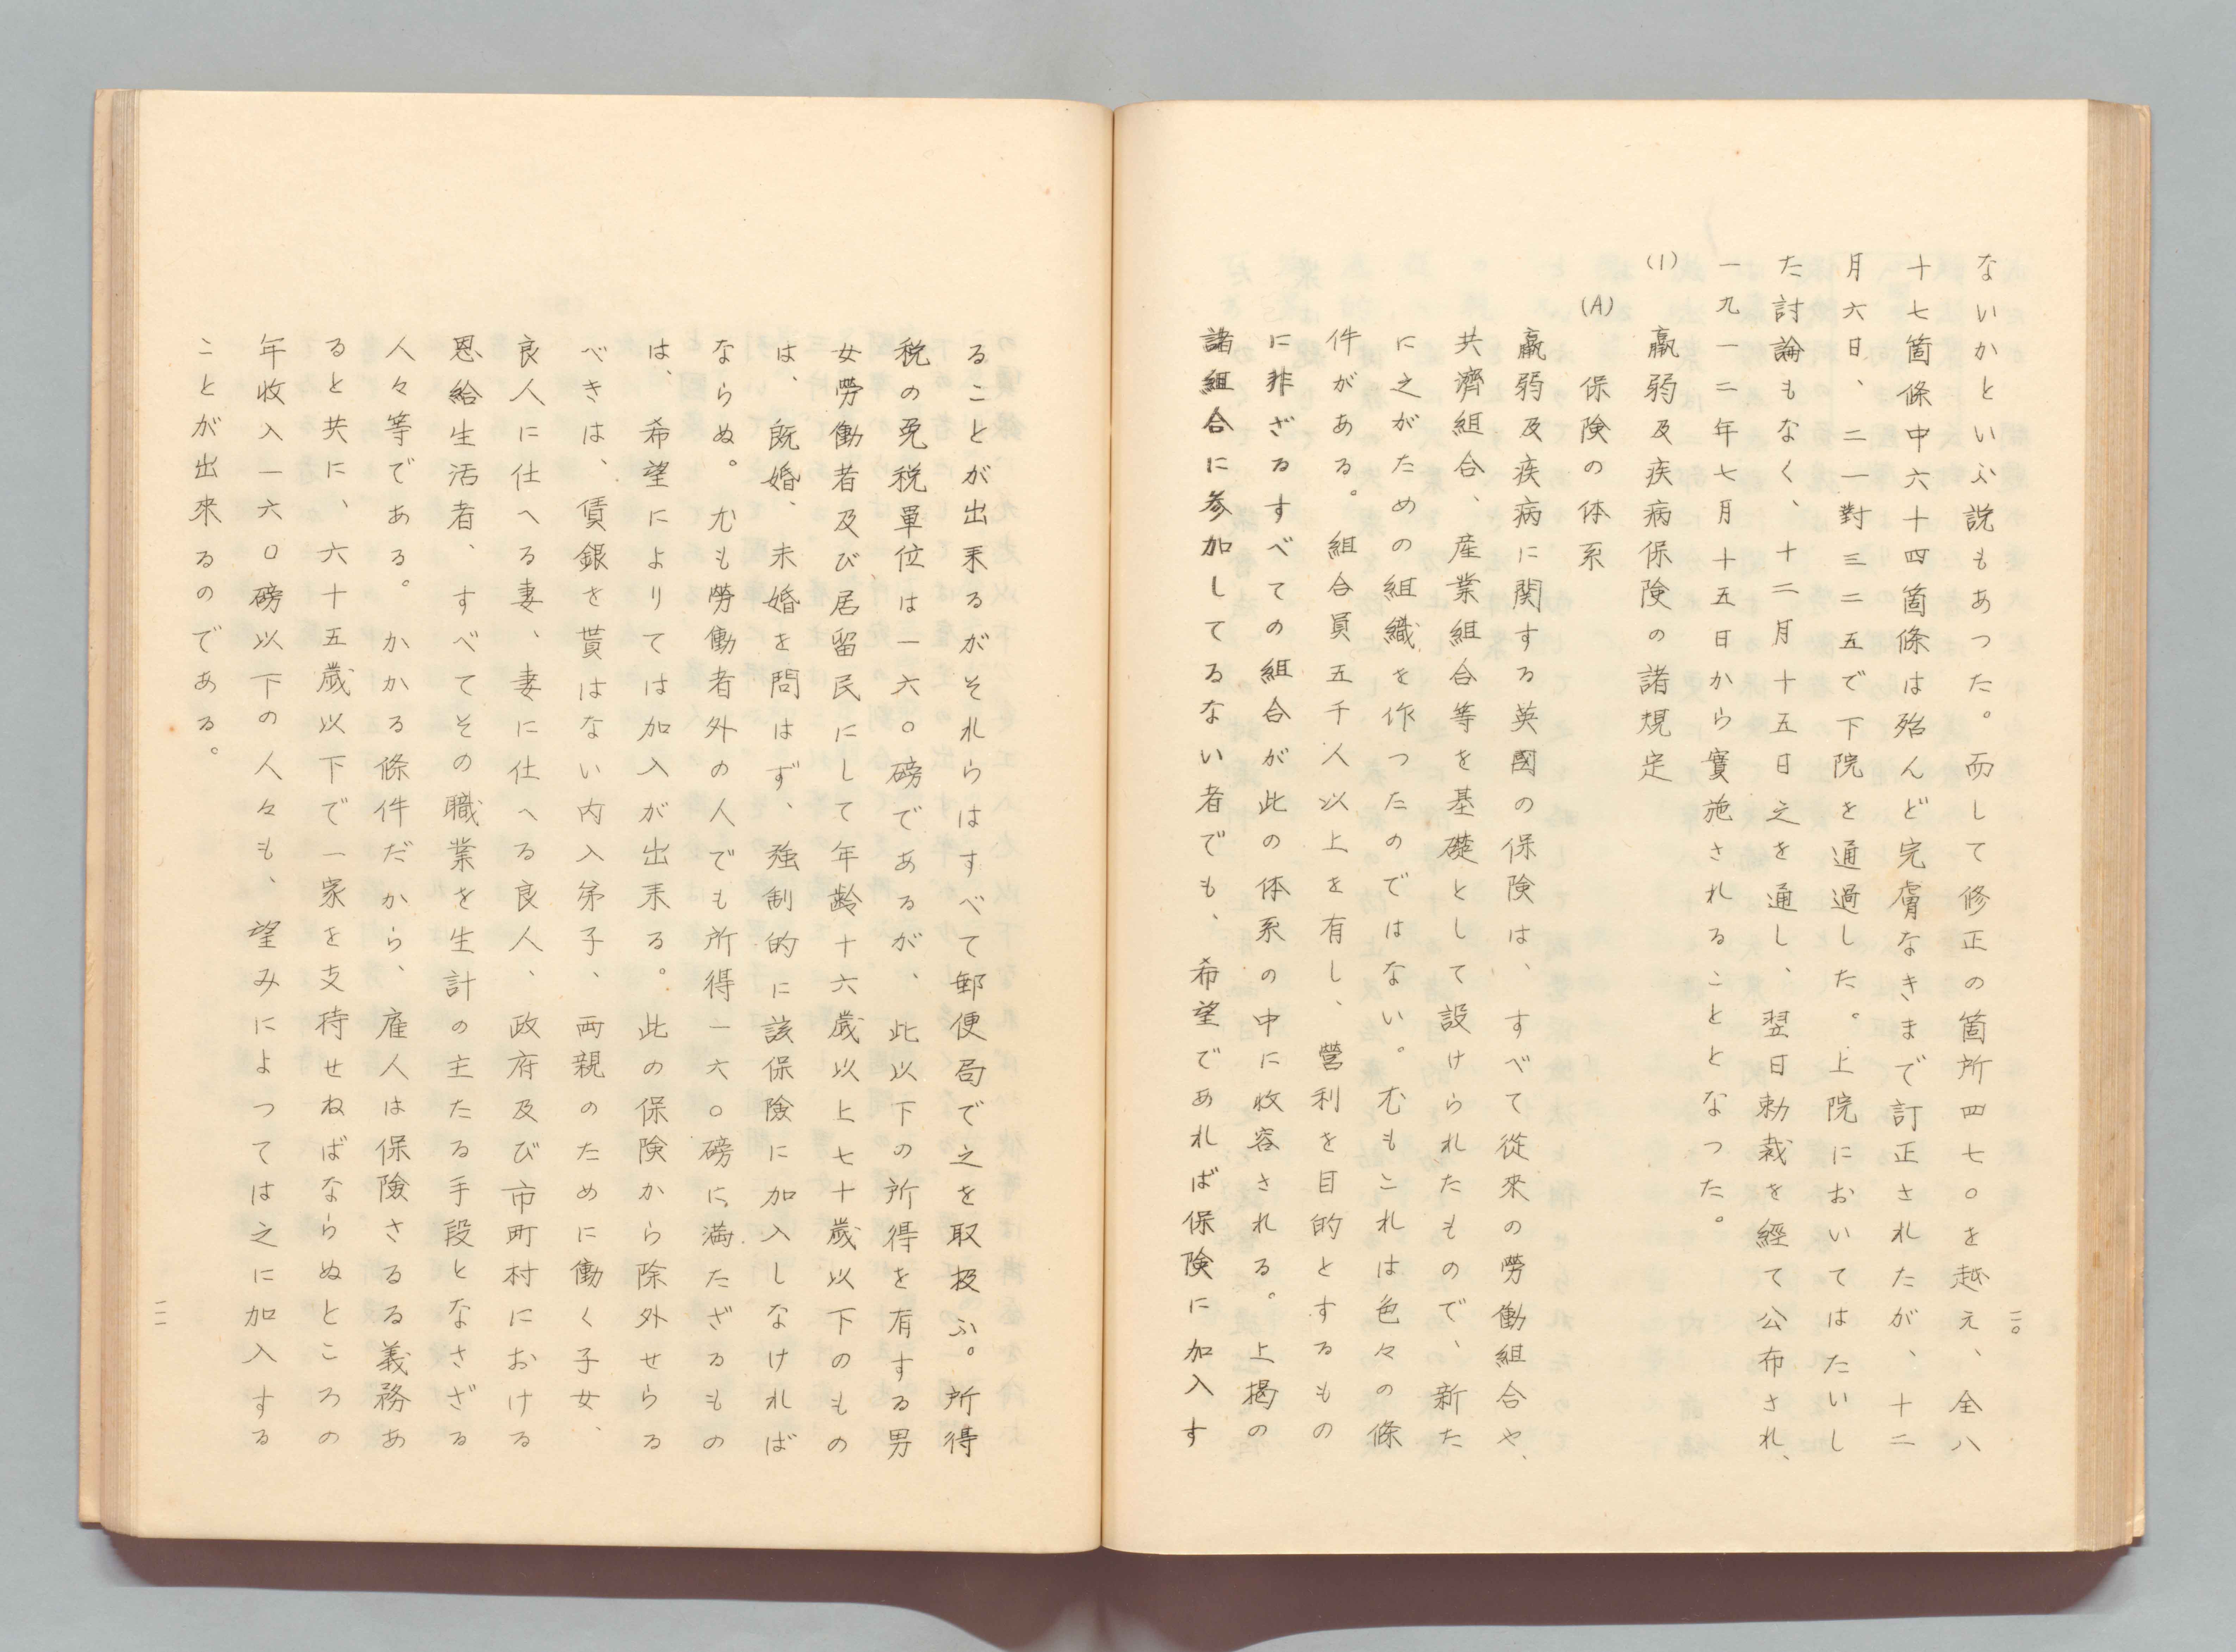 二〇
ないかといふ説もあつた。而して修正の箇所四七〇を越え、全八
十七箇條中六十四箇條は殆んど完膚なきまで訂正されたが、十二
月六日、二一對三二五で下院を通過した。上院においてはたいし
た討論もなく、十二月十五日之を通し、翌日勅裁を經て公布され、
一九一二年七月十五日から實施されることとなつた。
(1) 羸弱及疾病保険の諸規定
(A) 保険の体系
羸弱及疾病に関する英國の保険は、すべて從來の勞働組合や、
共濟組合、産業組合等を基礎として設けられたもので、新た
に之がための組織を作つたのではない。尤もこれは色々の條
件がある。組合員五千人以上を有し、營利を目的とするもの
に非ざるすべての組合が此の体系の中に收容される。上揭の
諸組合に参加してるない者でも、希望であれば保険に加入す
ることが出来るがそれらはすべて郵便局で之を取扱ふ。所得
税の免税單位は一六〇磅であるが、此以下の所得を有する男
女勞働者及び居留民にして年齡十六歳以上七十歳以下のもの
は、既婚、未婚を問はず、強制的に該保險に加入しなければ
ならぬ。尤も勞働者外の人でも所得一六〇磅に満たざるもの
は、希望によりては加入が出来る。此の保険から除外せらる
べきは、賃銀を貰はない内入弟子、両親のために働く子女、
良人に仕へる妻、妻に仕へる良人、政府及び市町村における
恩給生活者、すべてその職業を生計の主たる手段となさざる
人々等である。かかる條件だから、雇人は保險さるる義務あ
ると共に、六十五歳以下で一家を支持せねばならぬところの
年收入一六〇磅以下の人々も、望みによつては之に加入する
ことが出來るのである。
二一